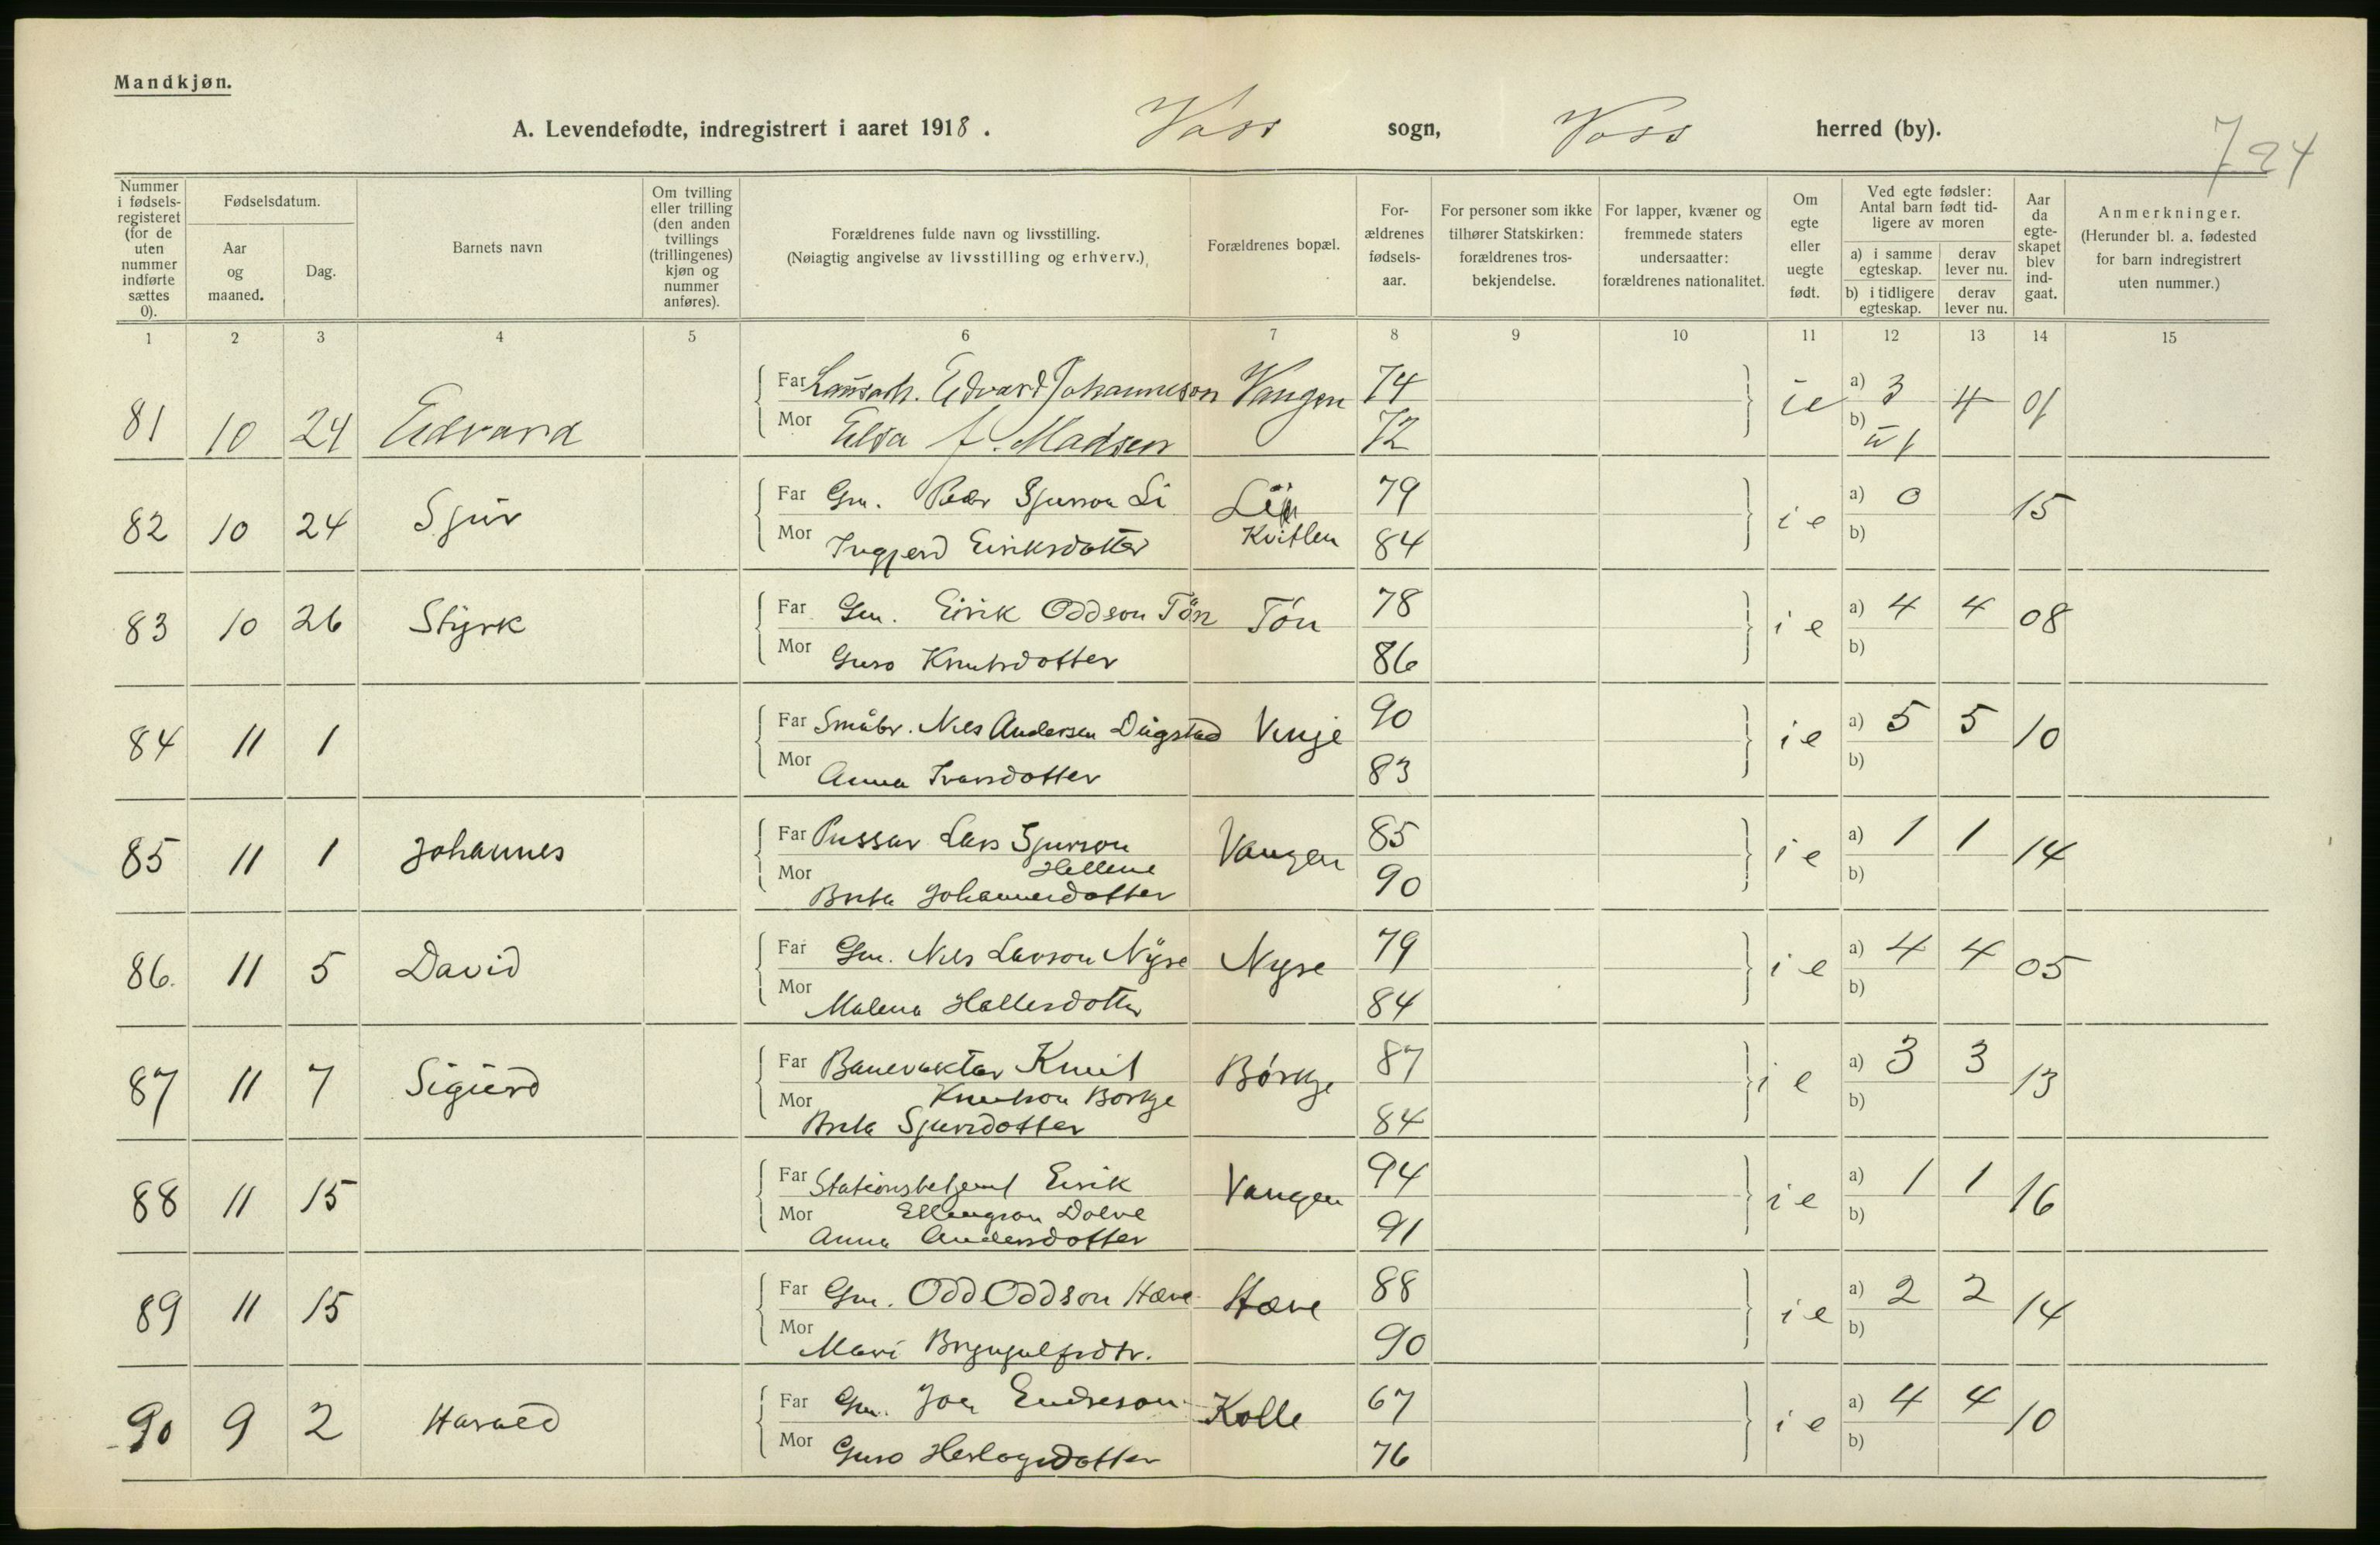 Mandkjøn.
A. Levendefødte, indregistrert i aaret 1918. Voss sogn, Voss herred (by).
724
Nummer i fødsels-registeret (for de uten nummer indførte sættes 0).
Fødselsdatum.
Aar og maaned.
Dag.
Barnets navn
Om tvilling eller trilling (den anden tvillings (trillingenes) kjøn og nummer anføres).
Forældrenes fulde navn og livsstilling. (Nøiagtig angivelse av livsstilling og erhverv.)
Forældrenes bopæl.
For-ældrenes fødsels-aar.
For personer som ikke tilhører Statskirken: forældrenes tros-bekjendelse.
For lapper, kvæner og fremmede staters undersaatter: forældrenes nationalitet.
Om egte eller uegte født.
Ved egte fødsler: Antal barn født tid-ligere av moren
a) i samme egteskap. derav lever nu.
b) i tidligere egteskap. derav lever nu.
Aar da egte-skapet blev ind-gaat.
Anmerkninger. (Herunder bl. a. fødested for barn indregistrert uten nummer.)
1 2 3 4 5 6 7 8 9 10 11 12 13 14 15
81 10 24 Edvard Far Edvard Johanneson Vangen 74 ie a) 3 4 01
Mor Elsa f. Madsen 72 b) u 1
82 10 24 Sjur Far Gm. Peder Sjurson Li 79 ie a) 0 15
Mor Ingjerd Eiriksdotter Kvitlen 84 b)
83 10 26 Styrk Far Gm. Eirik Oddson Tön Tón 78 ie a) 4 4 08
Mor Guro Knutsdotter 86 b)
84 11 1 Far Småbr. Nils Andersen Dugstad Vinje 90 ie a) 5 5 10
Mor Anna Ivarsdotter 83 b)
85 11 1 Johannes Far Pussar Lars Sjurson Vangen 85 ie a) 1 1 14
Hellene
Mor Brita Johannesdotter 90 b)
86. 11 5 David Far Gm. Nils Larson Nyre Nyre 79 ie a) 4 4 05
Mor Malena Hallesdotter 84 b)
87 11 7 Sigurd Far Banevaktar Knut Børkje 87 ie a) 3 3 13
Knutson Borkje
Mor Brita Sjursdotter 84 b)
88 11 15 Far Stationsbetjent Eirik Vangen 94 ie a) 1 1 16
Ellingson Dolve
Mor Anna Andersdotter 91 b)
89 11 15 Far Gm. Odd Oddson Hæve Hæve 88 ie a) 2 2 14
Mor Mari Brynjulfsdtr. 90 b)
90 9 2 Harald Far Gm. Joen Endreson Kolle 67 ie a) 4 4 10
Mor Guro Herlogsdotter 76 b)